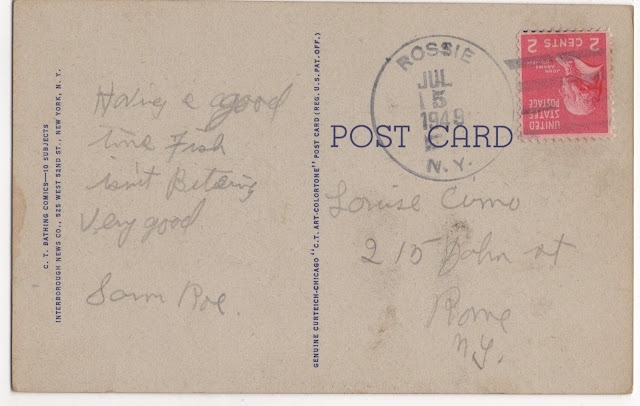 C. T. BATHING COMICS—10 SUBJECTS
INTERBOROUGH NEWS CO., 525 WEST 52ND ST., NEW YORK, N. Y.
Having a good
time Fish
isn't Beteing
Very good
Sam Roe.
GENUINE CURTEICH-CHICAGO "C.T. ART-COLORTONE" POST CARD (REG. U.S. PAT. OFF.)
POST CARD
ROSSIE
JUL
15
1949
N.Y.
UNITED
STATES
POSTAGE
JOHN
ADAMS
2 CENTS 2
Louise Cumo
215 Dohn st
Rome
N.Y.